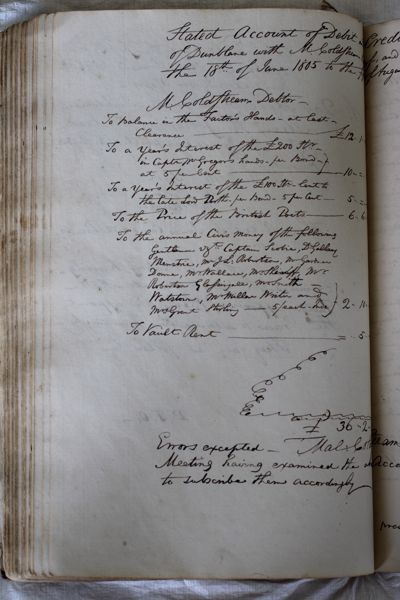 Stated Account of Debit
of Dunblane with M. Coldstream
the 18th of June 1805 to the
M. Coldstream Debtor
To balance in the Factor's Hands at last
Clearance £12
To a Year's Interest of the £200 Str.
in Captn McGregors hands per Bond
at 5 per Cent 10
To a Year's Interest of the £100 Str. lent to
the late Lord Perth per Bond 5 per Cent 5
To the Price of the British Poets 6 6
To the annual Civis Money of the following
Gentlen Vizt Captain Scobie,
Menstrie, Mr J. L. Robertson, Mr Gardner
Doune, Mr Wallace, Mr Mr
Robertson Glassingall, Mr Smith
Mr Millar Writer and
Mr Grant Stirling 5/ each 2
To Vault Rent 5
£ 36 2
Errors excepted Mal. Coldstream
Meeting having examined the Acco
to subscribe them accordingly